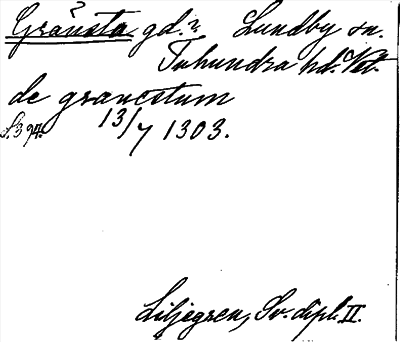 Gränsta gd.? Lundby sn.
Tuhundra hd. Vst.
de granestum
S. 3 gr. 13/7 1303.
Liljegren, Sv. dipl. II.